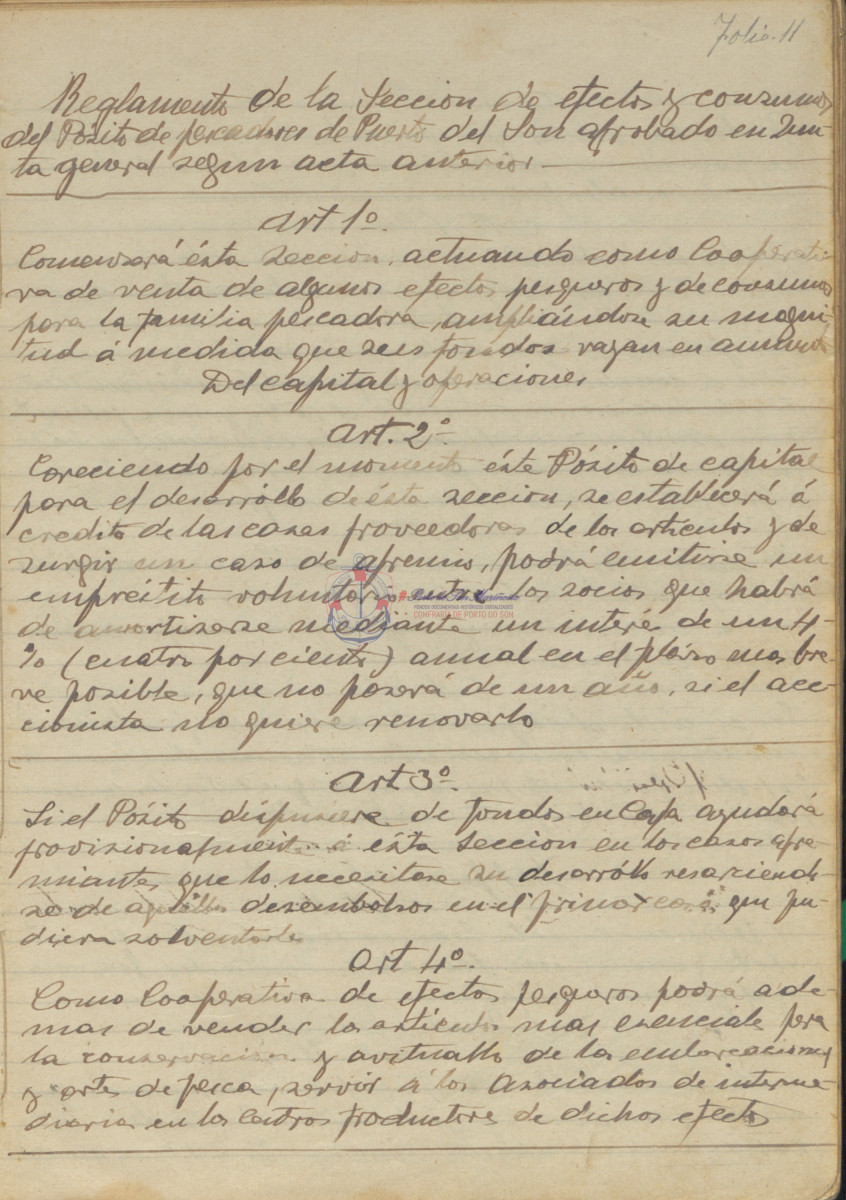 Folio. 11
Reglamento de la Seccion de efectos y consumos
del Pósito de pescadores de Puerto del Son aprobado en Jun-
ta general segun acta anterior
Art 1º.
Comenzará ésta seccion, actuando como Cooperati-
va de venta de algunos efectos pesqueros y de consumos
para la familia pescadora, ampliándose su magni-
tud á medida que sus fondos vayan en aumento
Del capital y operaciones
Art. 2º.
Careciendo por el momento éste Pósito de capital
para el desarróllo de ésta seccion, se establecerá á
credito de las casas proveedoras de los artículos y de
surgir un caso de apremio, podrá emitirse un
empréstito voluntario entre los socios que habrá
de amortizarse mediante un interés de un 4-
% (cuatro por ciento) anual en el plázo mas bre-
ve posible, que no pasará de un año, si el acc-
cionista no quiere renovarlo
Art 3º.
Si el Pósito dispusiere de fondos en Caja ayudará
provisionalmente á ésta Seccion en los casos apre-
miantes que lo necesitase su desarróllo resarciendo-
se de aquellos desembolsos en el primer caso que pu-
diera solventarlos
Art 4º.
Como Cooperativa de efectos pesqueros podrá ade-
mas de vender los artículos mas esenciales para
la conservación y avituallo de las embarcaciones
y artes de pesca, servir á los Asociados de interme-
diaria en los Centros productores de dichos efectos
FONDOS DOCUMENTAIS HISTÓRICOS DIXITALIZADOS
CONFRARÍA DE PORTO DO SON